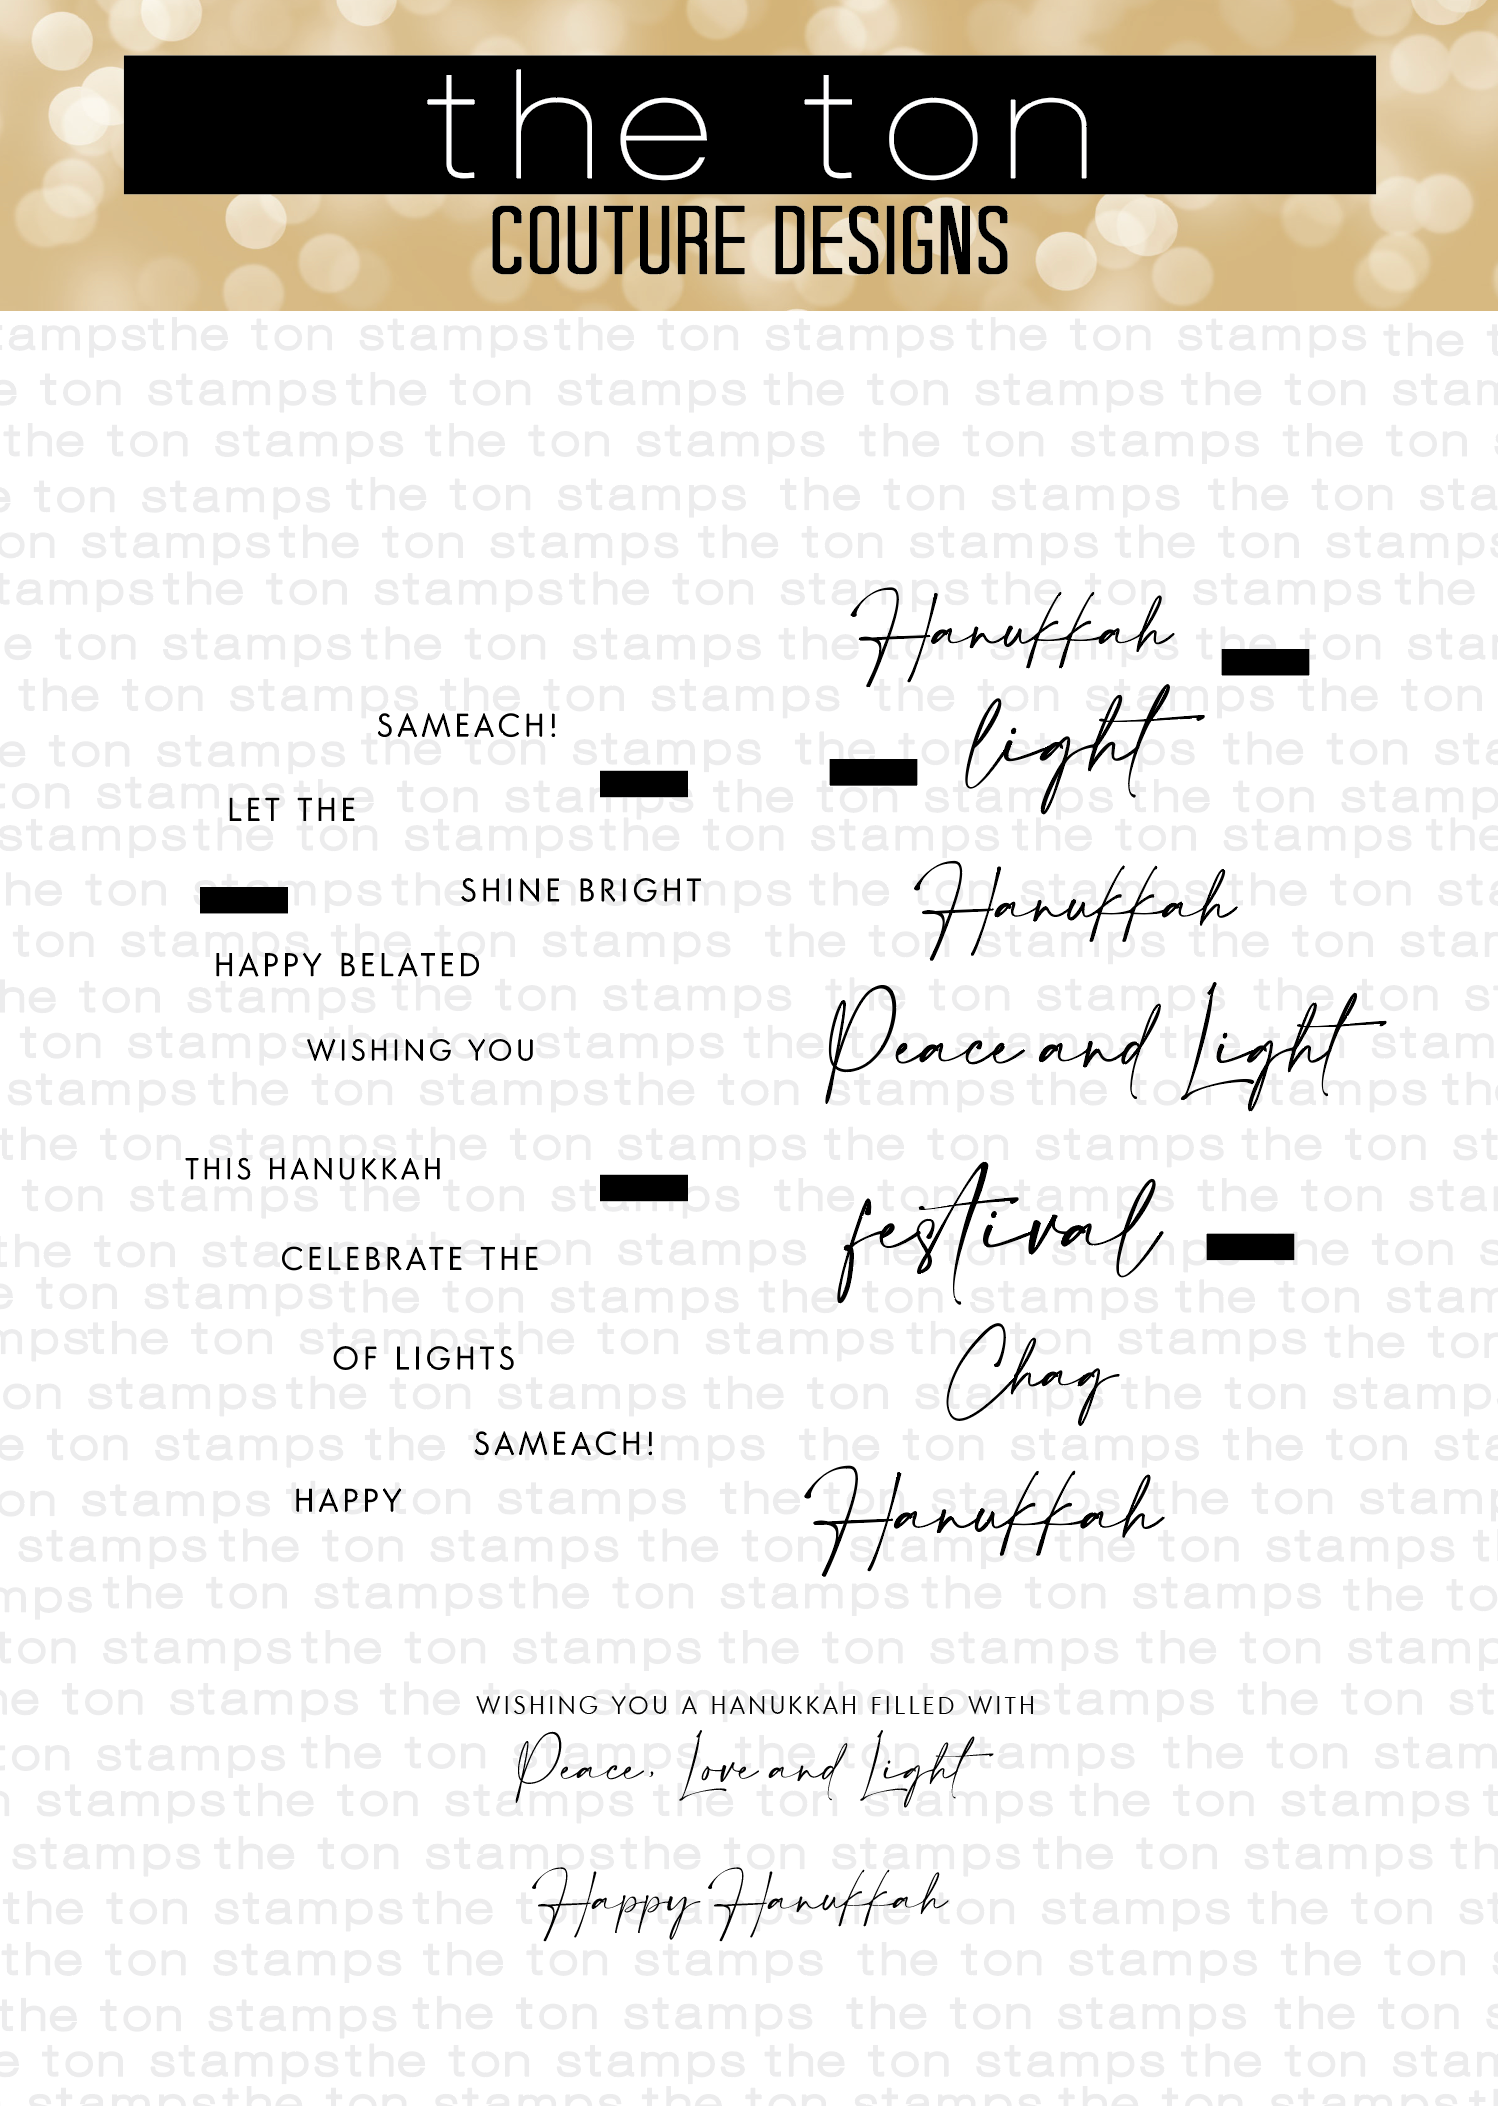 the ton
COUTURE DESIGNS
Hanukkah
SAMEACH!
light
LET THE
SHINE BRIGHT
Hanukkah
HAPPY BELATED
WISHING YOU
Peace and Light
THIS HANUKKAH
festival
CELEBRATE THE
OF LIGHTS
Chag
SAMEACH!
HAPPY
Hanukkah
WISHING YOU A HANUKKAH FILLED WITH
Peace, Love and Light
Happy Hanukkah